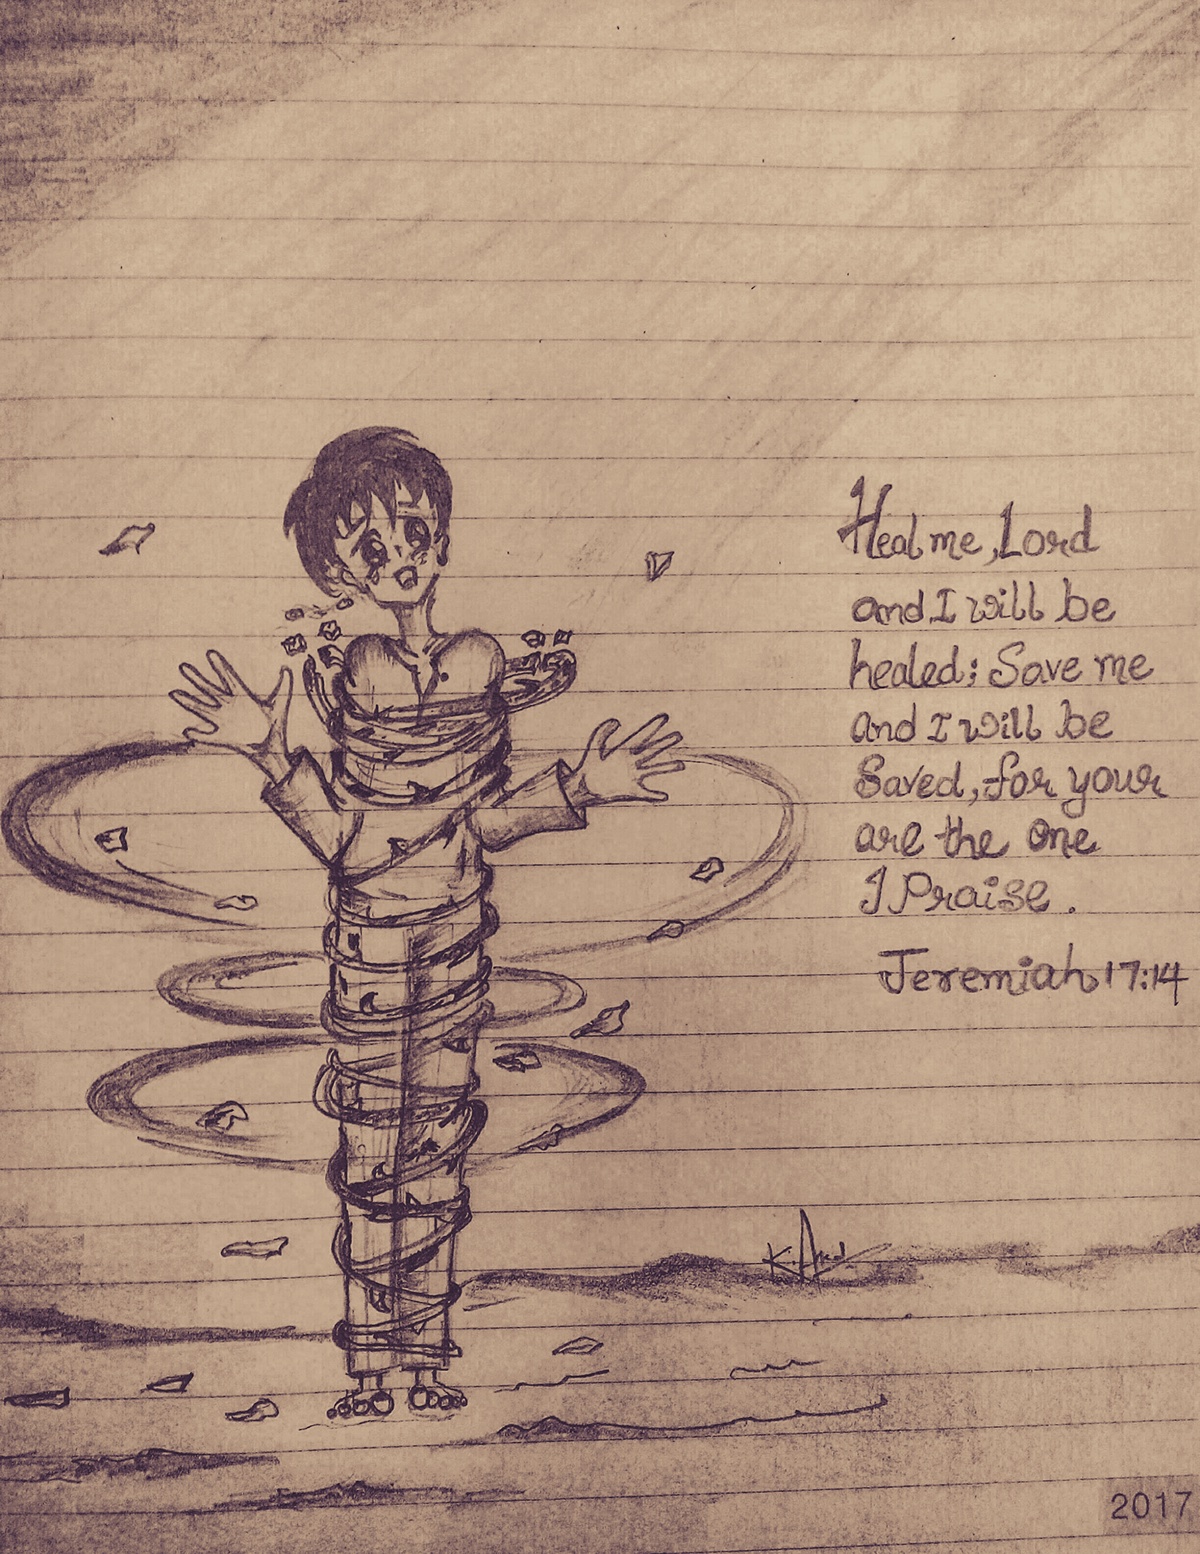 Heal me, Lord
and I will be
healed; Save me
and I will be
Saved, for your
are the one
I Praise.
Jeremiah 17:14
2017